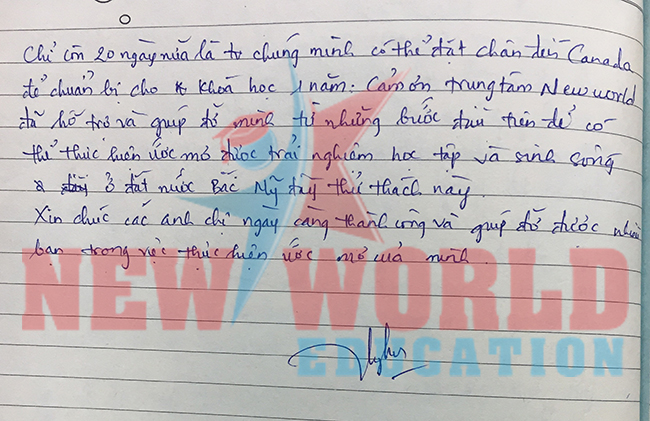 Chỉ còn 20 ngày nữa là tụi chúng mình có thể đặt chân đến Canada
để chuẩn bị cho khoá học 1 năm. Cảm ơn trung tâm New world
đã hỗ trợ và giúp đỡ mình từ những bước đầu tiên để có
thể thực hiện ước mơ được trải nghiệm học tập và sinh sống
ở đất nước Bắc Mỹ đầy thử thách này.
Xin chúc các anh chị ngày càng thành công và giúp đỡ được nhiều
bạn trong việc thực hiện ước mơ của mình
NEW WORLD
EDUCATION